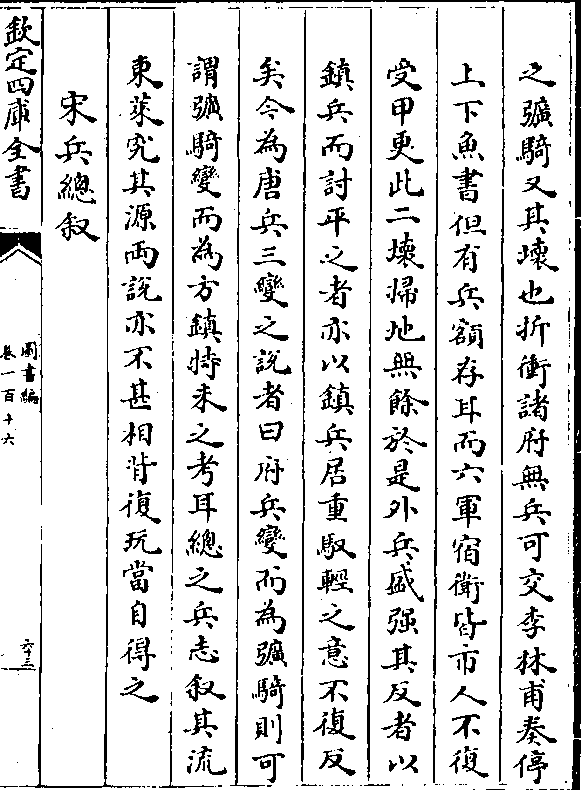 之彍騎又其壞也折衝諸府無兵可交李林甫奏停
上下魚書但有兵額存耳而六軍宿衛皆市人不復
受甲更此二壞掃地無餘於是外兵盛强其反者以
鎮兵而討平之者亦以鎮兵居重馭輕之意不復反
矣今為唐兵三變之説者曰府兵變而為彍騎則可
謂彍騎變而為方鎮特未之考耳總之兵志叙其流
東萊究其源両說亦不甚相背復玩當自得之
宋兵總叙
欽定四庫全書
圖書編
卷一百十六
六十三